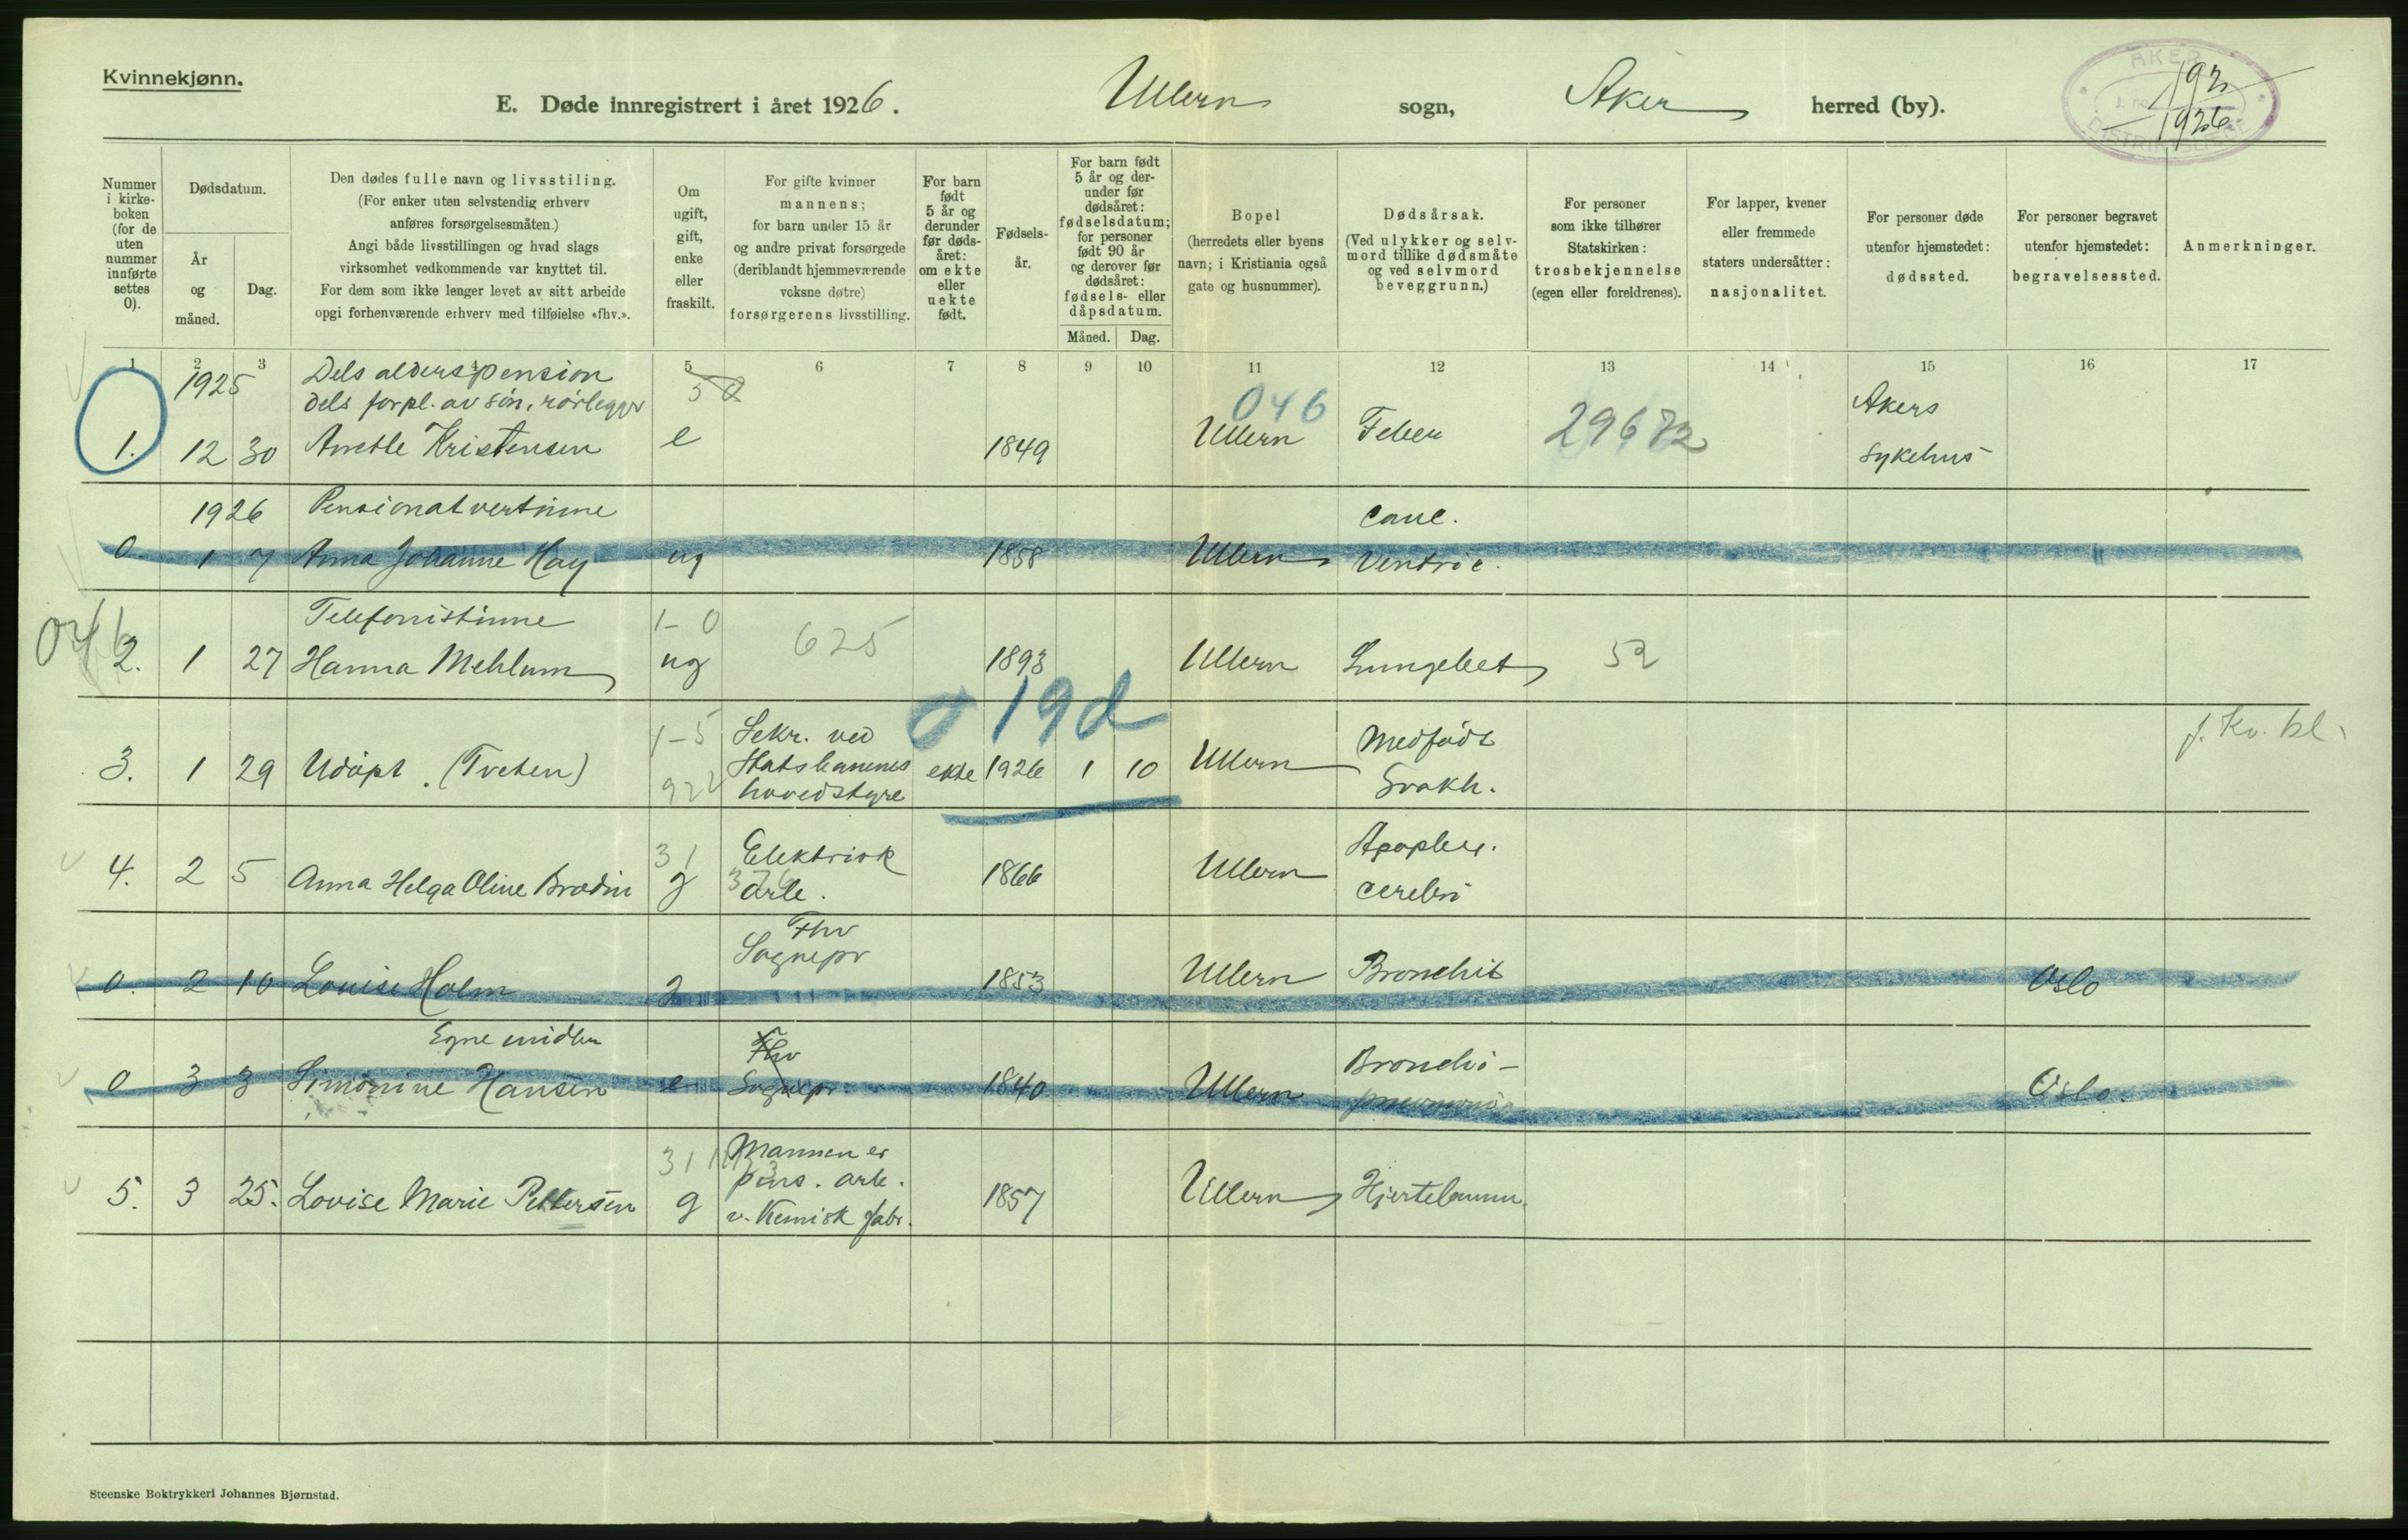 Kvinnekjønn.
E. Døde innregistrert i året 1926. Ullern sogn, Aker herred (by).
AKER
DISTRIKTSLÆGE
192
1926
Nummer i kirkeboken (for de uten nummer innførte settes 0).
Dødsdatum.
År og måned.
Dag.
Den dødes fulle navn og livsstiling.
(For enker uten selvstendig erhverv
anføres forsørgelsesmåten.)
Angi både livsstillingen og hvad slags
virksomhet vedkommende var knyttet til.
For dem som ikke lenger levet av sitt arbeide
opgi forhenværende erhverv med tilføielse «fhv.».
Om
ugift,
gift,
enke
eller
fraskilt.
For gifte kvinner
mannens;
for barn under 15 år
og andre privat forsørgede
(deriblandt hjemmeværende
voksne døtre)
forsørgerens livsstilling.
For barn
født
5 år og
derunder
før døds-
året:
om ekte
eller
uekte
født.
Fødsels-
år.
For barn født
5 år og der-
under før
dødsåret:
fødselsdatum;
for personer
født 90 år
og derover før
dødsåret:
fødsels- eller
dåpsdatum.
Måned. Dag.
Bopel
(herredets eller byens
navn; i Kristiania også
gate og husnummer).
Dødsårsak.
(Ved ulykker og selv-
mord tillike dødsmåte
og ved selvmord
beveggrunn.)
For personer
som ikke tilhører
Statskirken:
trosbekjennelse
(egen eller foreldrenes).
For lapper, kvener
eller fremmede
staters undersåtter:
nasjonalitet.
For personer døde
utenfor hjemstedet:
dødssted.
For personer begravet
utenfor hjemstedet:
begravelsessted.
Anmerkninger.
1 2 3 5 6 7 8 9 10 11 12 13 14 15 16 17
1925 Dels alderspension 046 Akers
dels forpl. av søn, rørlegger
1. 12 30 Anette Kristensen e 1849 Ullern Feber 29672 Sykehus
1926 Pensionatvertinne Canc.
0. 1 7 Anna Johanne Hay ug 1858 Ullern Ventric.
Telefonistinne 1-0 625
046 2. 1 27 Hanna Mehlum ug 1893 Ullern Lungebet 52
19d
1-5 Sekr. ved Medfødt f. Kv. bl.
3. 1 29 Udøpt. (Tveten) 922 Statsbanenes ekte 1926 1 10 Ullern
hovedstyre Svakh.
31 Elektrisk Apoplex.
4. 2 5 Anna Helga Oline Brodin g arb. 1866 Ullern cerebri
Fhv
Sognepr
0. 2 10 Louise Holm g 1853 Ullern Bronchit Oslo
Egne midler Fhv Broncho-
0 3 3 Simonine Hansen e Sognepr. 1840 Ullern pneumoni Oslo.
311 Mannen er
pens. arb.
5. 3 25. Lovise Marie Pettersen g v. Kemisk fabr. 1857 Ullern Hjertelamm.
Steenske Boktrykkeri Johannes Bjørnstad.